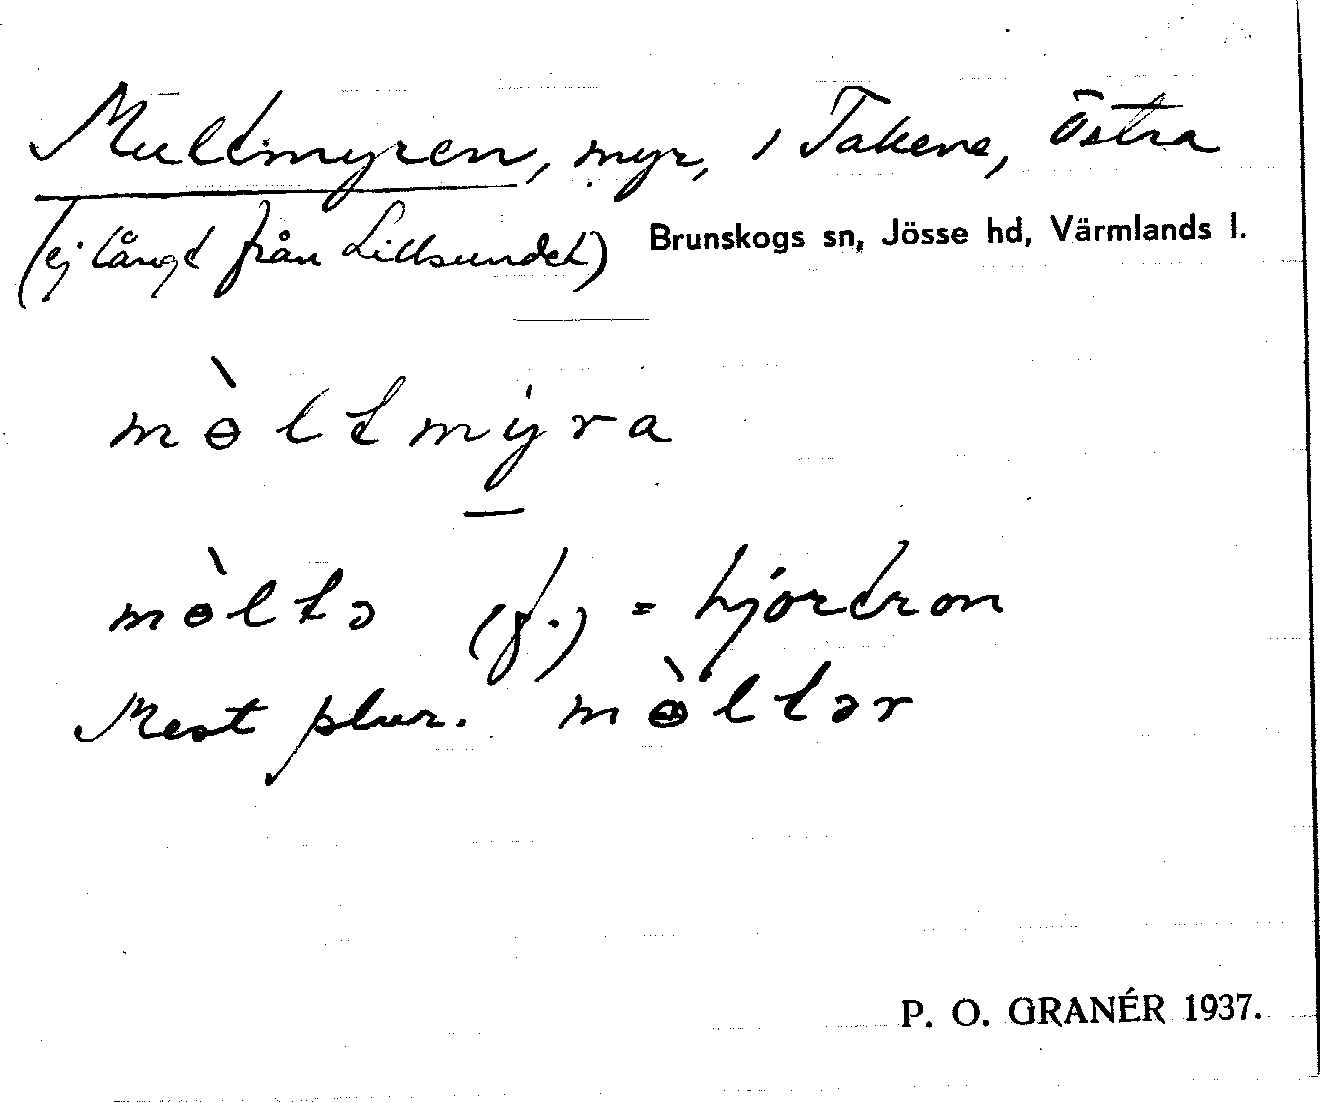 Multmyren, myr, i Takene, Östra
(ej långt från Lillsundet) Brunskogs sn, Jösse hd, Värmlands l.
mɵ̀ltmy̍ra
mɵ̀ltə (f.) = hjortron
Mest plur. mɵ̀ltər
P. O. GRANÉR 1937.